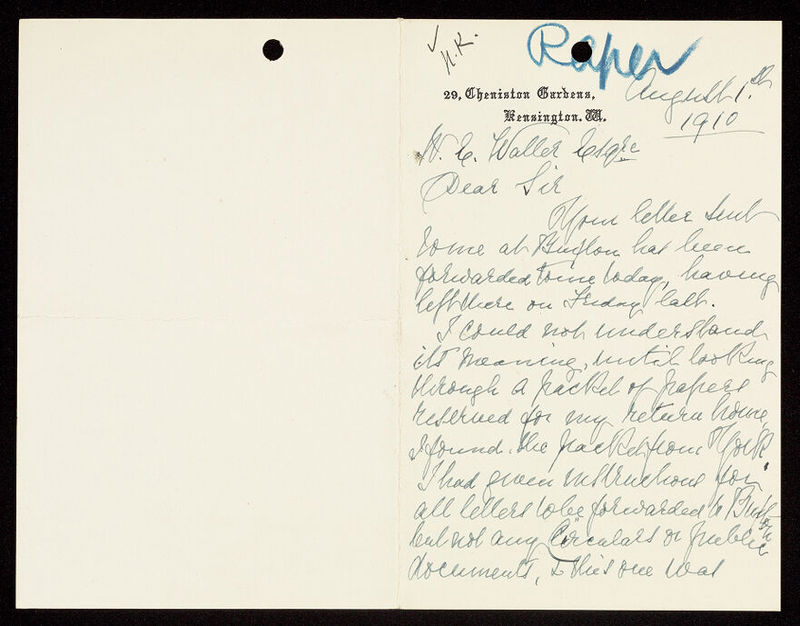 ✓ H.K.
Raper
29, Cheniston Gardens,
Kensington. W.
August 1st
1910
H. E. Waller Esqre
Dear Sir
Your letter sent
to me at Buxton has been
forwarded to me today, having
left there on Friday last.
I could not understand
its meaning, until looking
through a packet of papers
reserved for my return home,
I found the packet from York
I had given instructions for
all letters to be forwarded to Buxton
but not any Circulars or public
documents, & this one was